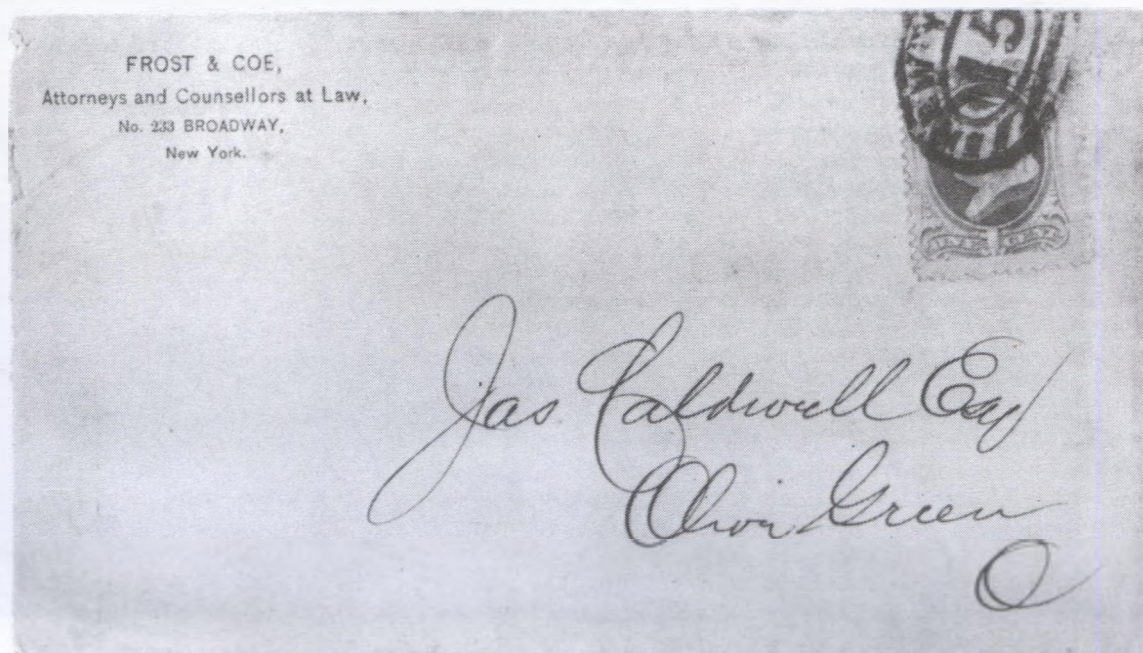 FROST & COE,
Attorneys and Counsellors at Law,
No. 233 BROADWAY,
New York.
15
Jas. Caldwell Esq
Olive Green
O